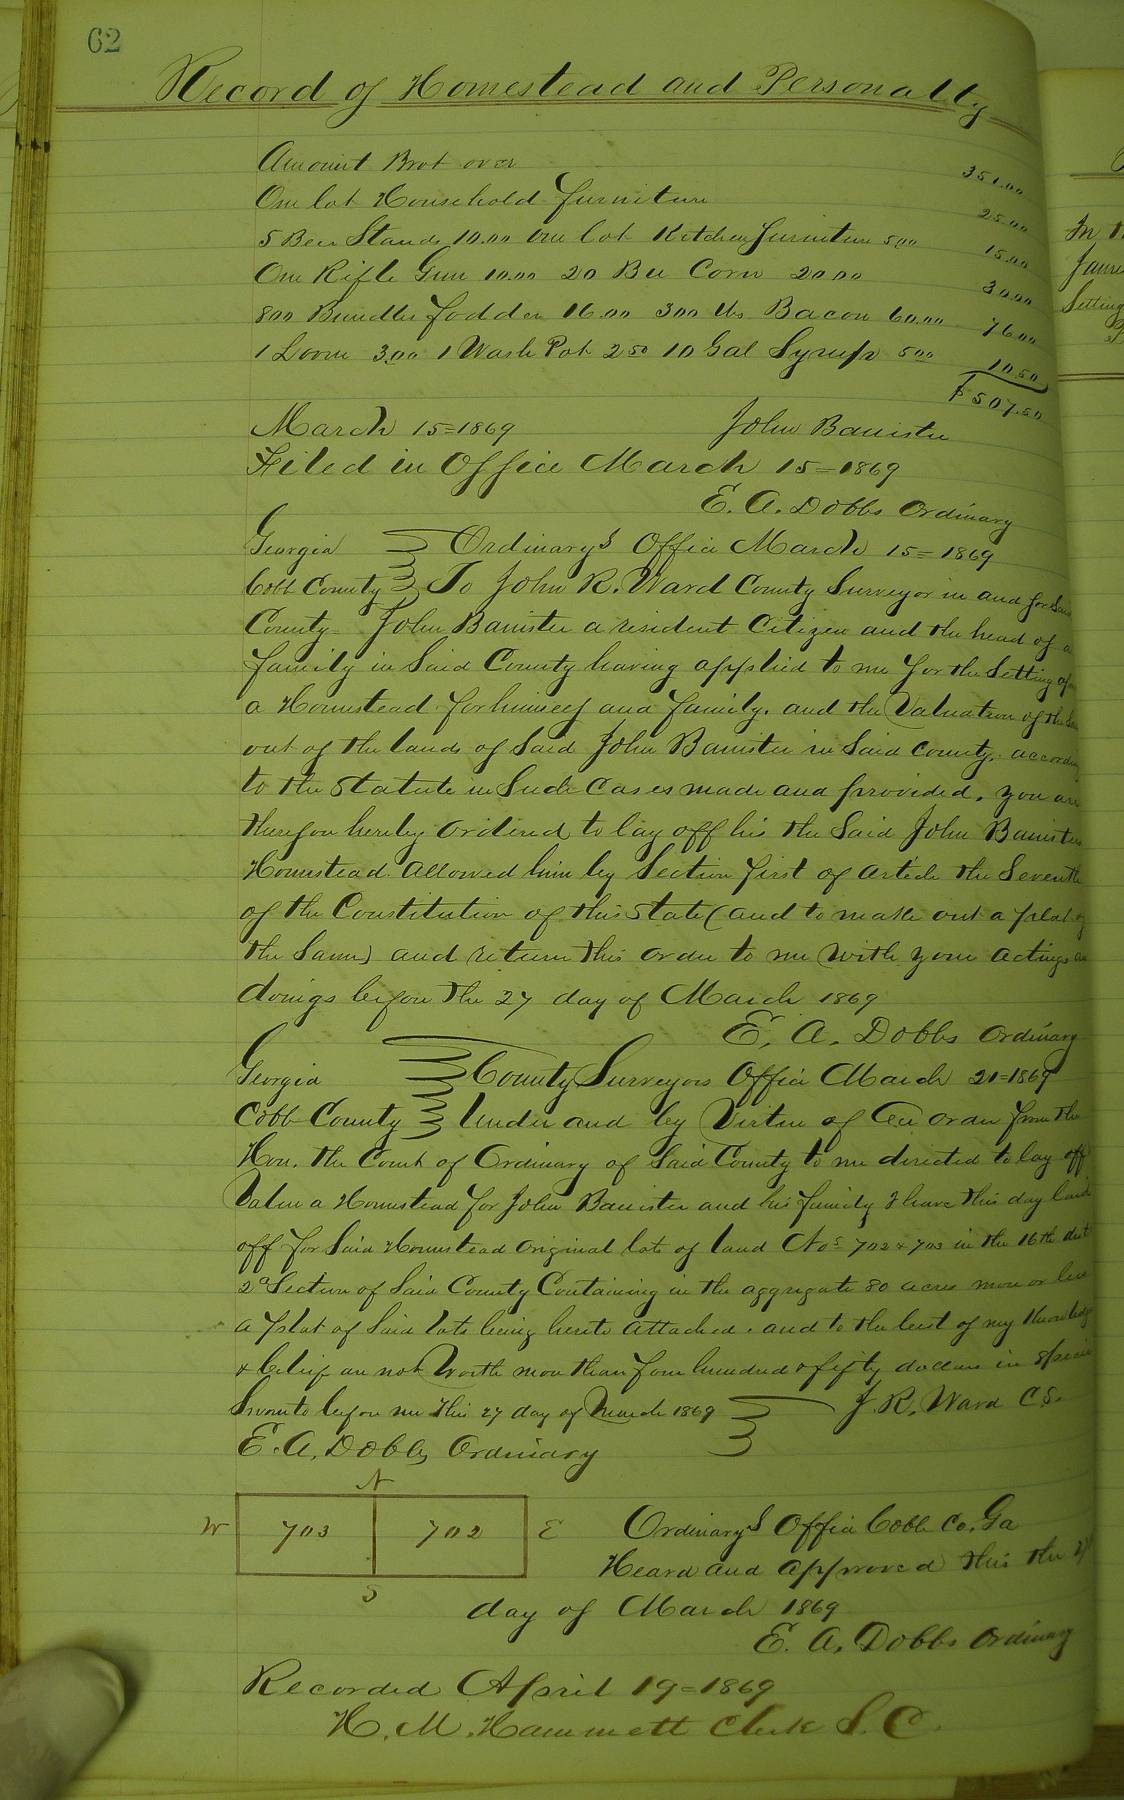 62
Record of Homestead and Personalty
Amount Brot over 351.00
One lot Household furniture 25.00
5 Bee Stands 10.00 one lot Kitchen furniture 5.00 15.00
One Rifle Gun 10.00 20 Bu Corn 20.00 30.00
800 Bundles fodder 16.00 300 lbs Bacon 60.00 76.00
1 Loom 3.00 1 Wash Pot 2.50 10 Gal Syrup 5.00 10.50
$507.50
March 15=1869 John Banister
Filed in Office March 15=1869
E. A. Dobbs Ordinary
Georgia Ordinarys Office March 15=1869
Cobb County To John R. Ward County Surveyor in and for Said
County John Banister a resident Citizen and the head of a
family in Said County having applied to me for the Setting
a Homestead for himself and family. and the Valuation of the
out of the lands of Said John Banister in Said County. according
to the Statute in Such Cases made and provided. you are
therefore hereby ordered to lay off his the Said John Banister
Homestead allowed him by Section first of article the Seventh
of the Constitution of this State (and to make out a plat of
the Same) and return this order to me with your actings
doings before the 27 day of March 1869
E. A. Dobbs Ordinary
Georgia County Surveyors Office March 21=1869
Cobb County Under and by Virtue of an order from the
Hon. the Court of Ordinary of Said County to me directed to lay off
Value a Homestead for John Banister and his family I have this day laid
off for Said Homestead original lots of land Nos 702 & 703 in the 16th dist
2d Section of Said County Containing in the aggregate 80 acres more or less
a plat of Said lots being hereto attached. and to the best of my Knowledge
& belief are not Worth more than four hundred & fifty dollars in Specie
Sworn to before me this 27 day of March 1869 J. R. Ward C.S.
E. A. Dobbs Ordinary
N
W 703 702 E
S
Ordinarys Office Cobb Co. Ga
Heard and approved this the
day of March 1869
E. A. Dobbs Ordinary
Recorded April 19=1869
H. M. Hammett Clerk S. C.
In
Setting